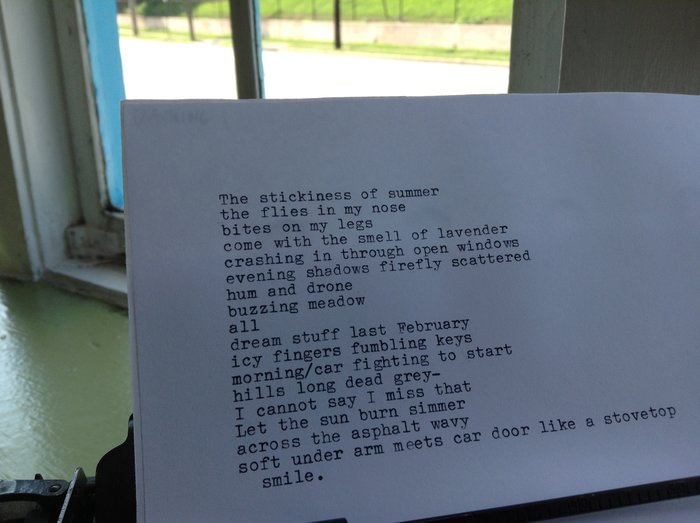 The stickiness of summer
the flies in my nose
bites on my legs
come with the smell of lavender
crashing in through open windows
evening shadows firefly scattered
hum and drone
buzzing meadow
all
dream stuff last February
icy fingers fumbling keys
morning/car fighting to start
hills long dead grey-
I cannot say I miss that
Let the sun burn simmer
across the asphalt wavy
soft under arm meets car door like a stovetop
smile.